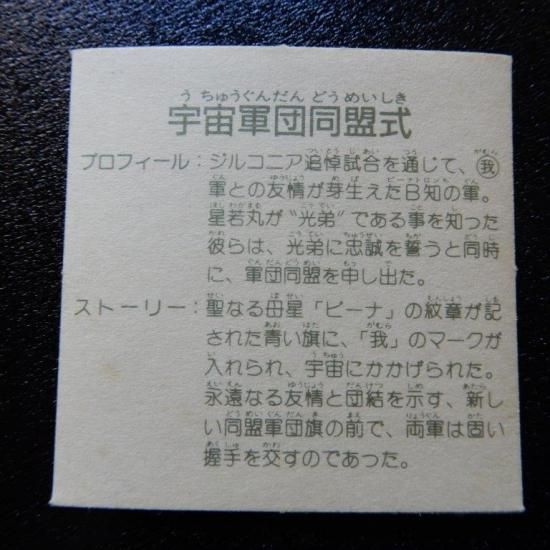 宇宙軍団同盟式
プロフィール：ジルコニア追悼試合を通じて、㊙我
軍との友情が芽生えたB知の軍。
星若丸が“光弟”である事を知った
彼らは、光弟に忠誠を誓うと同時
に、軍団同盟を申し出た。
ストーリー：聖なる母星「ビーナ」の紋章が記
された青い旗に、「我」のマークが
入れられ、宇宙にかかげられた。
永遠なる友情と団結を示す、新し
い同盟軍団旗の前で、両軍は固い
握手を交すのであった。